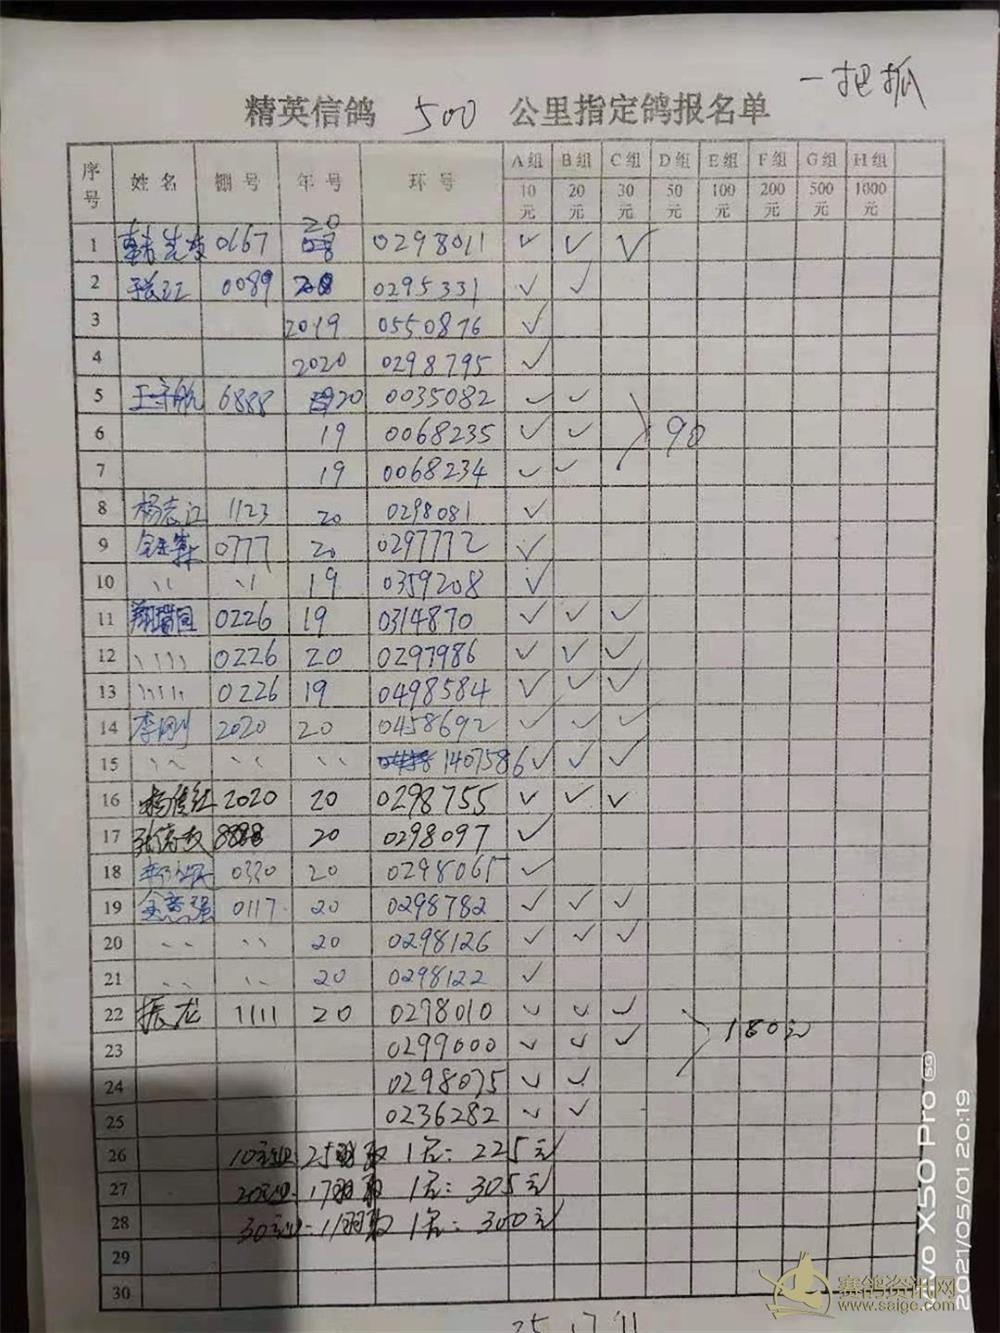 一把抓
精英信鸽 500 公里指定鸽报名单
序号 姓名 棚号 年号 环号 A组 B组 C组 D组 E组 F组 G组 H组
10元 20元 30元 50元 100元 200元 500元 1000元
1 0167 20 0298011 ✓ ✓ ✓
2 张江 0089 0295331 ✓ ✓
3 2019 0550876 ✓
4 2020 0298795 ✓
5 王守航 6888 20 0035082 ✓ ✓
6 19 0068235 ✓ ✓ 90
7 19 0068234 ✓ ✓
8 杨志江 1123 20 0298081 ✓
9 0777 20 0297772 ✓
10 〃 〃 19 0359208 ✓
11 0226 19 0314870 ✓ ✓ ✓
12 〃 0226 20 0297986 ✓ ✓ ✓
13 〃 0226 19 0498584 ✓ ✓ ✓
14 李刚 2020 20 0458692 ✓ ✓ ✓
15 〃 〃 〃 1407586 ✓ ✓ ✓
16 2020 20 0298755 ✓ ✓ ✓
17 20 0298097 ✓
18 0330 20 0298065 ✓
19 金志强 0117 20 0298782 ✓ ✓ ✓
20 〃 〃 20 0298126 ✓ ✓ ✓
21 〃 〃 20 0298122 ✓
22 振龙 1111 20 0298010 ✓ ✓ ✓ 180元
23 0299000 ✓ ✓ ✓
24 0298075 ✓ ✓
25 0236282 ✓ ✓
26 10元 25羽取1名: 225元
27 20元 17羽取1名: 305元
28 30元 11羽取1名: 300元
29
30
25 17 11
vivo X50 Pro 5G
2021/05/01 20:19
赛鸽资讯网
www.saige.com